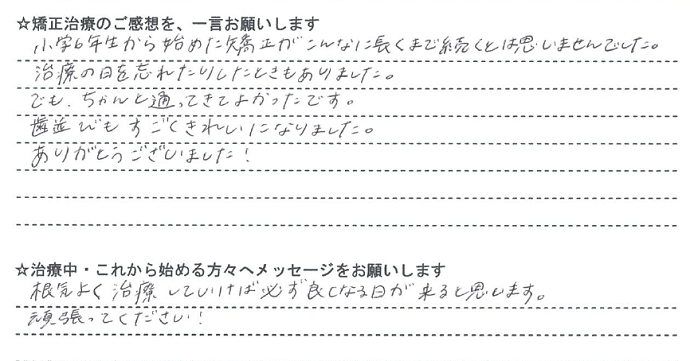 ☆矯正治療のご感想を、一言お願いします
小学6年生から始めた矯正がこんなに長くまで続くとは思いませんでした。
治療の日を忘れたりしたときもありました。
でも、ちゃんと通ってきてよかったです。
歯並びもすごくきれいになりました。
ありがとうございました！
☆治療中・これから始める方々へメッセージをお願いします
根気よく治療していけば必ず良くなる日が来ると思います。
頑張ってください！